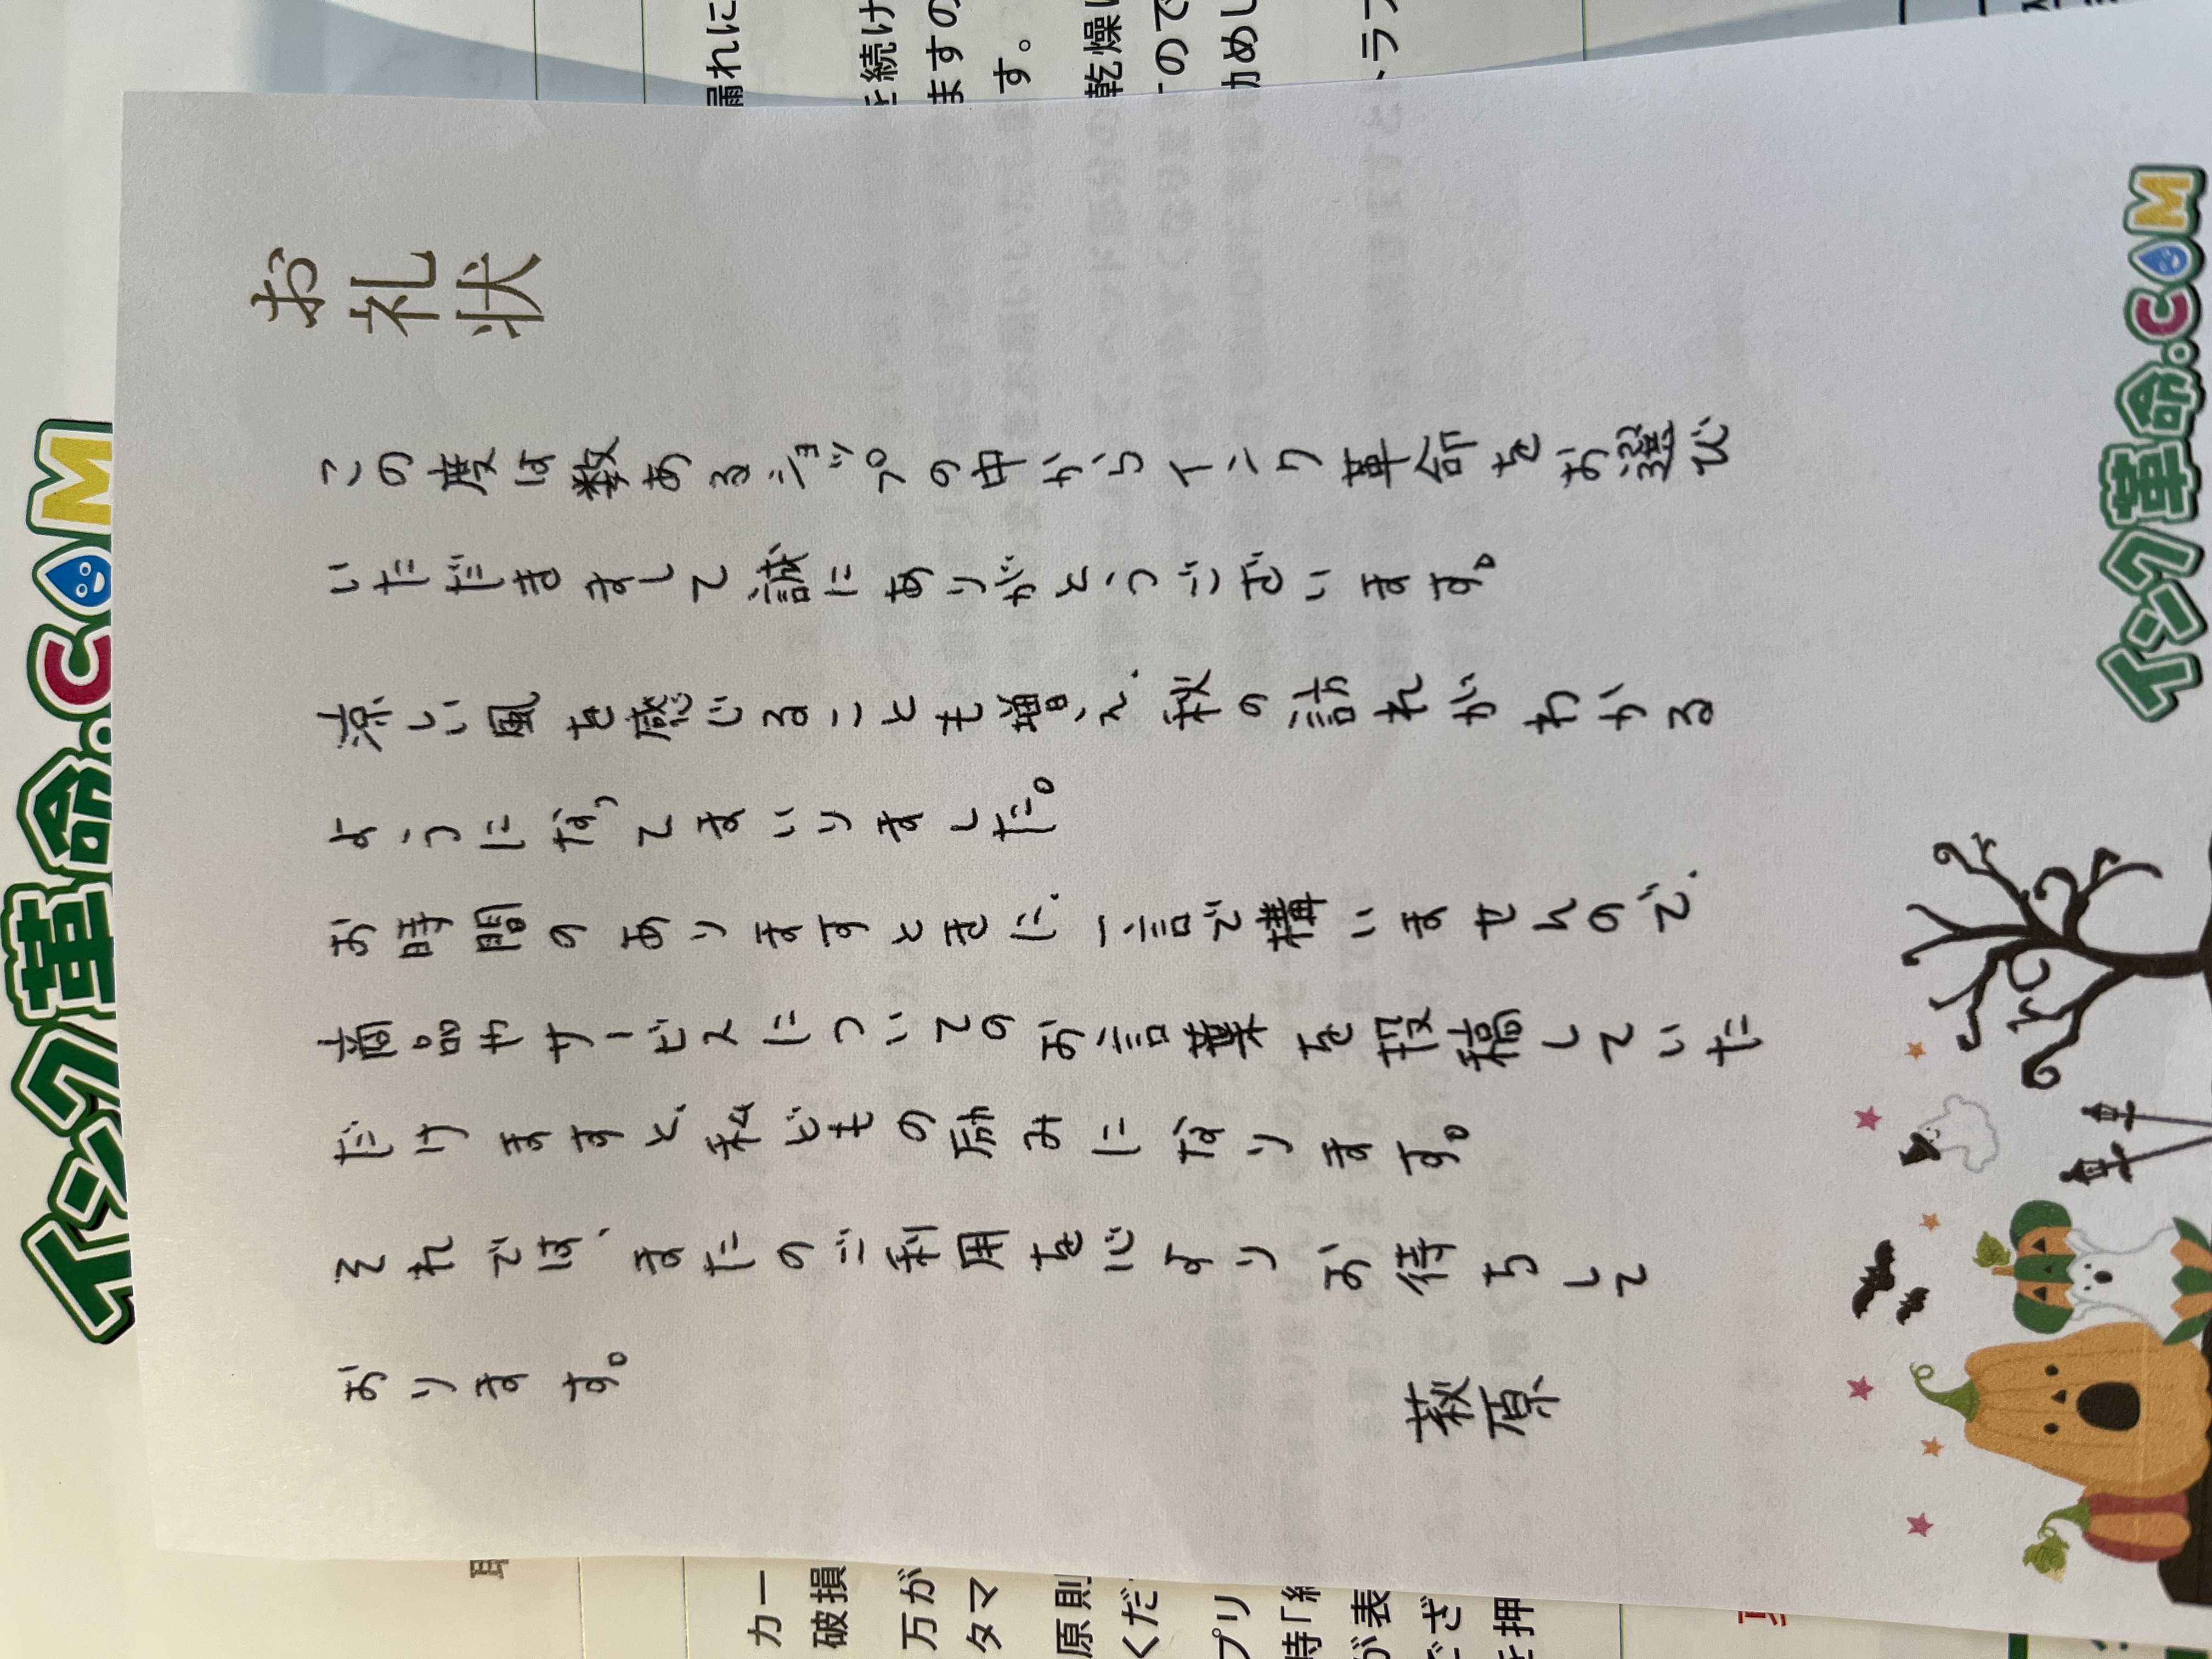 お礼状
この度は数あるショップの中からインク革命をお選び
いただきまして誠にありがとうございます。
涼しい風を感じることも増え、秋の訪れがわかる
ようになってまいりました。
お時間のありますときに、一言で構いませんので、
商品やサービスについてのお言葉を投稿していた
だけますと、私どもの励みになります。
それでは、またのご利用を心よりお待ちして
おります。
萩原
インク革命.COM
インク革命.COM
漏れに
を続け
ますの
す。
乾燥
ので
めし
トラブ
カー
破損
万が
タマ
原則
くだ
プリ
時「
が表
ござ
を押